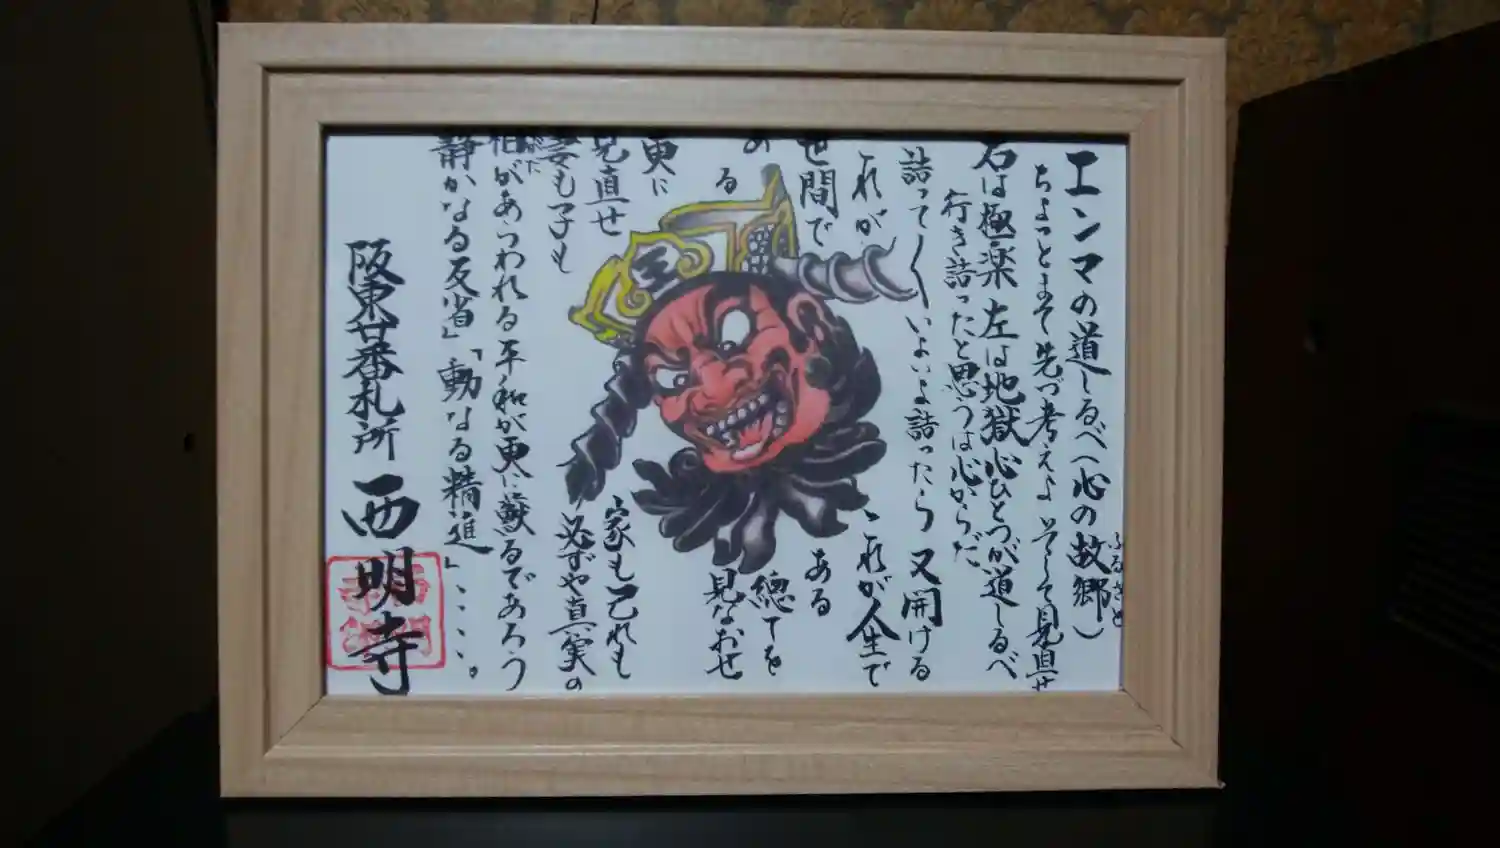 エンマの道しるべ(心の故郷)
ふるさと
ちょっとまて先づ考えよ そして見直せ
右は極楽 左は地獄 心ひとつが道しるべ
行き詰ったと思うは心からだ
詰って〱いよいよ詰ったら 又開ける
これが これが人生で
世間で ある
ある 總てを
見なおせ
更に
見直せ 家も己れも
妻も子も 必ずや真実の
相があらわれる 平和が更に蘇るであろう
静かなる反省」「動なる精進」・・・・。
阪東廿番札所 西明寺